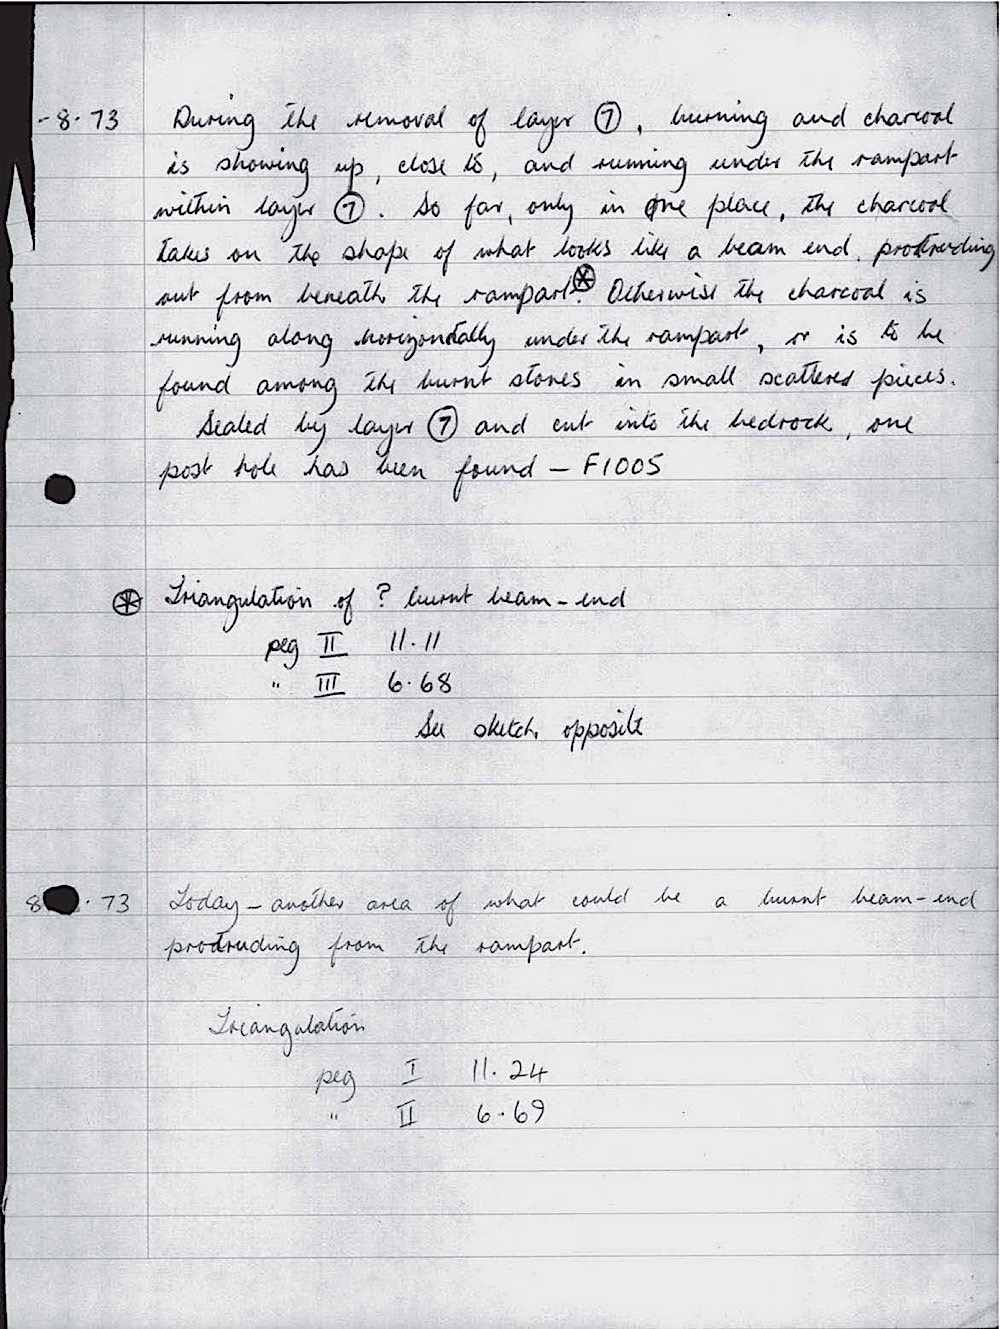 -8·73 During the removal of layer ⑦, burning and charcoal
is showing up, close to, and running under the rampart
within layer ⑦. So far, only in one place, the charcoal
takes on the shape of what looks like a beam end, protruding
out from beneath the rampart.⊛ Otherwise the charcoal is
running along horizontally under the rampart, or is to be
found among the burnt stones in small scattered pieces.
Sealed by layer ⑦ and cut into the bedrock, one
post hole has been found – F1005
⊛ Triangulation of ? burnt beam-end
peg II 11·11
" III 6·68
See sketch opposite
8 ·73 Today – another area of what could be a burnt beam-end
protruding from the rampart.
Triangulation
peg I 11·24
" II 6·69